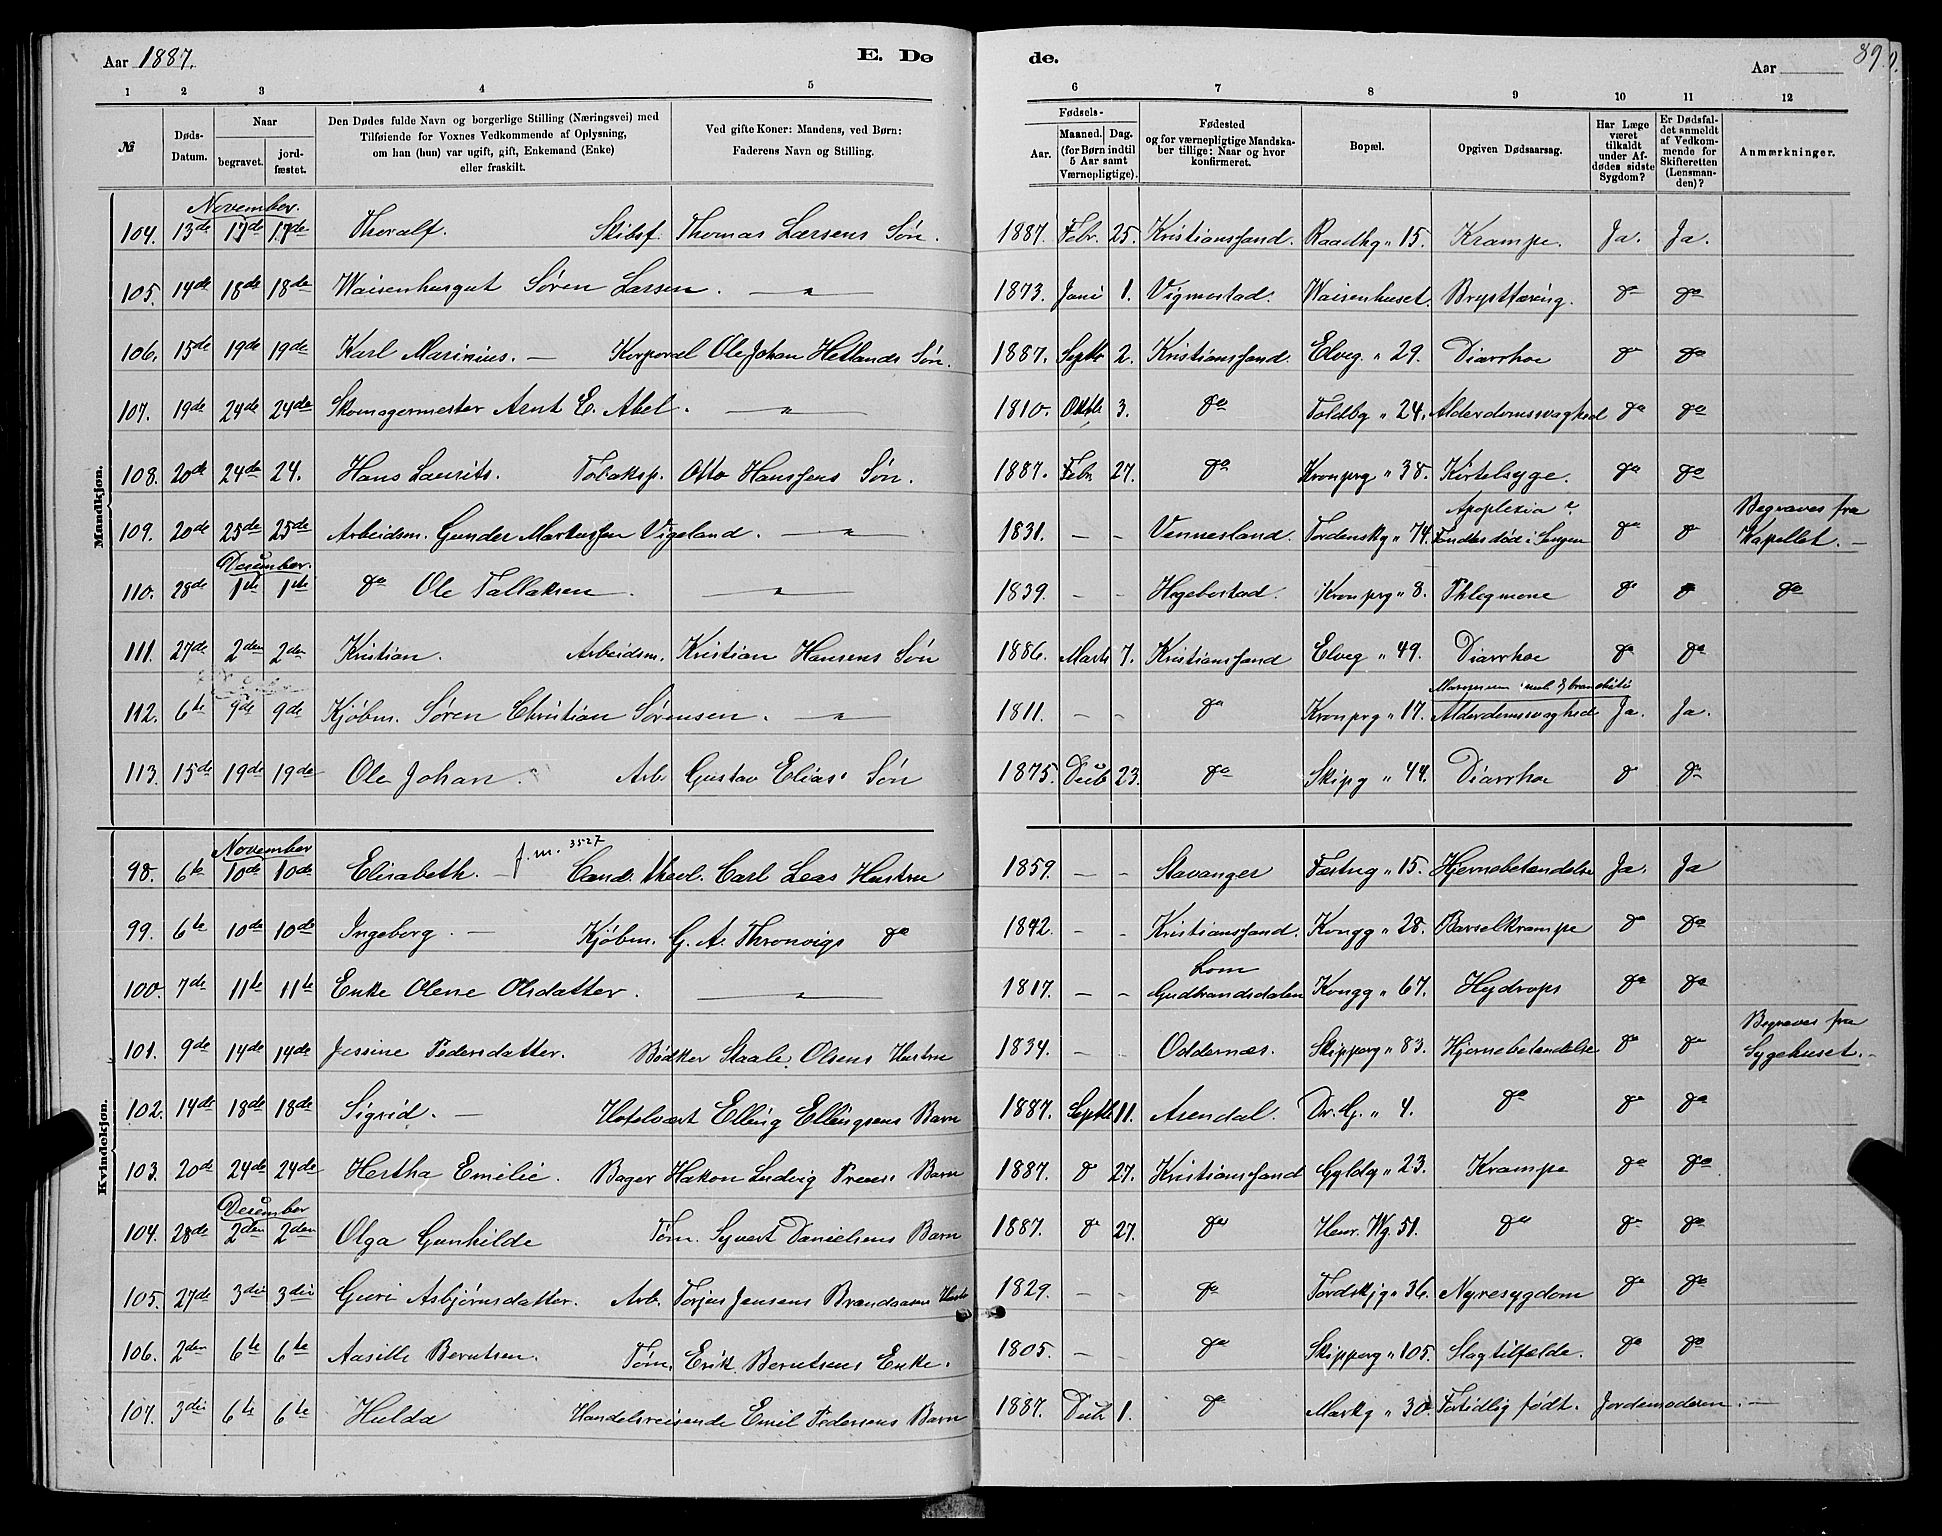 Aar 1887. E. Dø de. Aar 89.
1 2 3 4 5 6 7 8 9 10 11 12
№ Døds-Datum. Naar begravet. jordfæstet. Den Dødes fulde Navn og borgerlige Stilling (Næringsvei) med Tilføiende for Voxnes Vedkommende af Oplysning, om han (hun) var ugift, gift, Enkemand (Enke) eller fraskilt. Ved gifte Koner: Mandens, ved Børn: Faderens Navn og Stilling. Fødsels- Aar. Maaned. Dag. (for Børn indtil 5 Aar samt Værnepligtige). Fødested og for værnepligtige Mandskaber tillige: Naar og hvor konfirmeret. Bopæl. Opgiven Dødsaarsag. Har Læge været tilkaldt under Afdødes sidste Sygdom? Er Dødsfaldet anmeldt af Vedkommende for Skifteretten (Lensmanden)? Anmærkninger.
Mandkjøn.
November.
104. 13de 17de 17de Thoralf. Skibsf. Thomas Larsens Søn. 1887. Febr. 25. Kristianssand. Raadhg " 15. Krampe. Ja. Ja.
105. 14de 18de 18de Waisenhusgut Søren Larsen. — " — 1873. Juni 1. Vigmostad. Waisenhuset. Brysttæring. do do
106. 15de 19de 19de Karl Marinius. — Korporal Ole Johan Hetlands Søn. 1887. Septb 2. Kristianssand. Elveg " 29. Diarrhoe do do
107. 19de 24de 24de Skomagermester Arnt E. Abel. — " — 1810. Oktb 3. do Toldbg " 24. Alderdomssvaghed do do
108. 20de 24de 24. Hans Laurits. Tobaksp. Otto Hanssens Søn. 1887. Febr 27. do Kronprg " 38. Kirtelsyge. do do
109. 20de 25de 25de Arbeidsm. Gunder Martinssen Vigeland. — " — 1831. – – Vennesland. Tordenskg " 74. Apoplexia Fandtes død i Sengen do do Begraves fra Kapellet. —
December.
110. 28de 1ste 1ste do Ole Tallaksen. — " — 1839. – – Hegebostad. Kronprg " 8. Phlegmone do do do
111. 27de 2den 2den Kristian. Arbeidsm. Kristian Hansens Søn 1886. Marts 7. Kristianssand Elveg " 49. Diarrhoe do do
112. 6te 9de 9de Kjøbm. Søren Christian Sørensen. — " — 1811. – – do Kronprg " 17. Alderdomssvaghed Ja. Ja.
113. 15de 19de 19de Ole Johan. Arb. Gustav Elias' Søn 1875. Decb 23. do Skipg " 44. Diarrhoe do do
Kvindekjøn.
November
98. 6te 10de 10de Elisabeth. — f.m. 3527 Cand. theol. Carl Leas Hustru 1859. – – Stavanger Fæstng " 15. Hjernebetændelse Ja. Ja
99. 6te 10de 10de Ingeborg. — Kjøbm. G. A. Thronvigs do 1842. – – Kristianssand. Kongg " 28. Barselkrampe do do
100. 7de 11te 11te Enke Olene Olsdatter. — " — 1817. – – Lom Gudbrandsdalen Kongg " 67. Hydrops do do
101. 9de 14de 14de Jessine Pedersdatter. Bødker Staale Olsens Hustru 1834. – – Oddernæs. Skipperg " 83. Hjernebetændelse do do Begraves fra Sygehuset. –
102. 14de 18de 18de Sigrid. — Hotelvært Elling Ellingsens Barn 1887. Septb. 11. Arendal. Dr. G. " 4. do do do
103. 20de 24de 24de Hertha Emilie. Bager Hakon Ludvig Preuss' Barn 1887. do 27. Kristianssand Gyldg " 23. Krampe do do
December
104. 28de 2den 2den Olga Gunhilde Tøm. Syvert Danielsens Barn 1887. do 27. do Henr. Wg. 51. do do do
105. 27de 3die 3die Guri Asbjørnsdatter. Arb. Torjus Jensens Brandaasens Hustr 1829. – – do Tordskjg " 36. Nyresygdom do do
106. 2den 6te 6te Aasille Berntsen. Tøm. Erik Berntsens Enke. 1805. – – do Skipperg " 105. Slagtilfælde. do do
107. 3die 6te 6te Hulda Handelsreisende Emil Pedersens Barn 1887. Decb 1. do Markg " 30. Fortidlig født. Jordemoderen. —